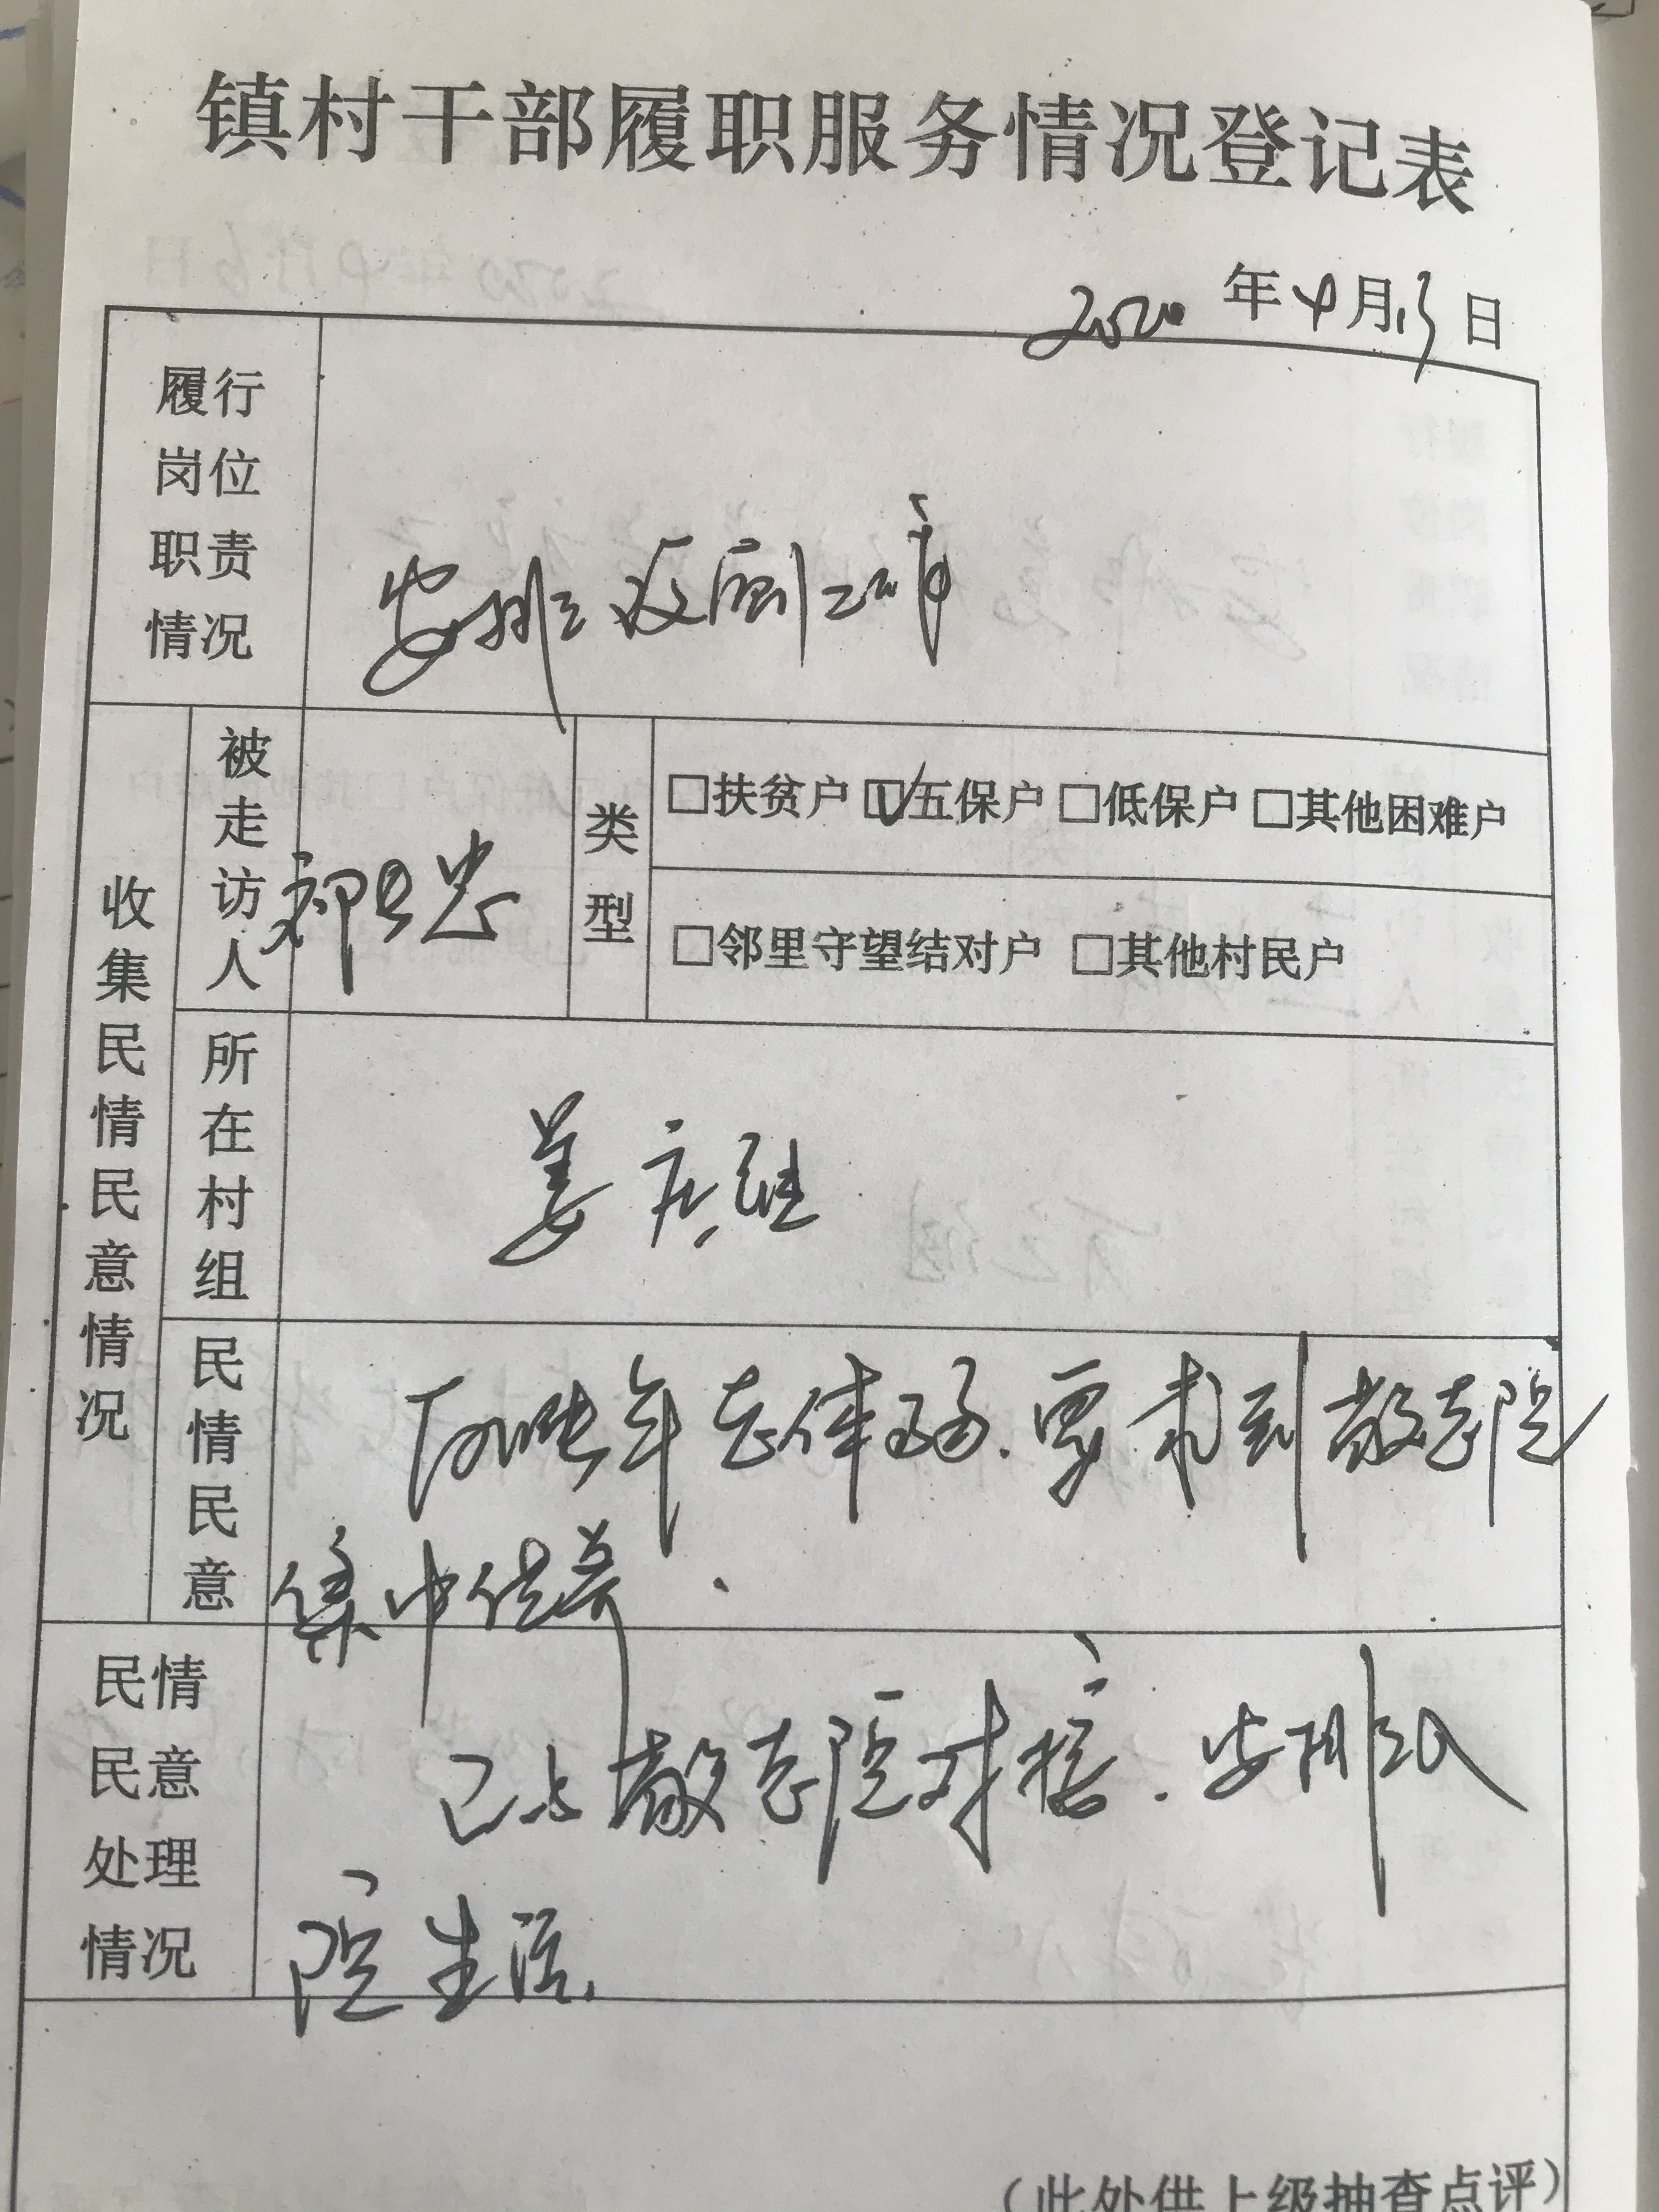 镇村干部履职服务情况登记表
2020年4月13日
履行岗位职责情况
安排
收集民情民意情况
被走访人
忠
类型
□扶贫户 ☑五保户 □低保户 □其他困难户
□邻里守望结对户 □其他村民户
所在村组
姜庄组
民情民意
年老体弱.要求到敬老院
集中供养.
民情民意处理情况
已与敬老院对接.安排入
院生活.
（此处供上级抽查点评）